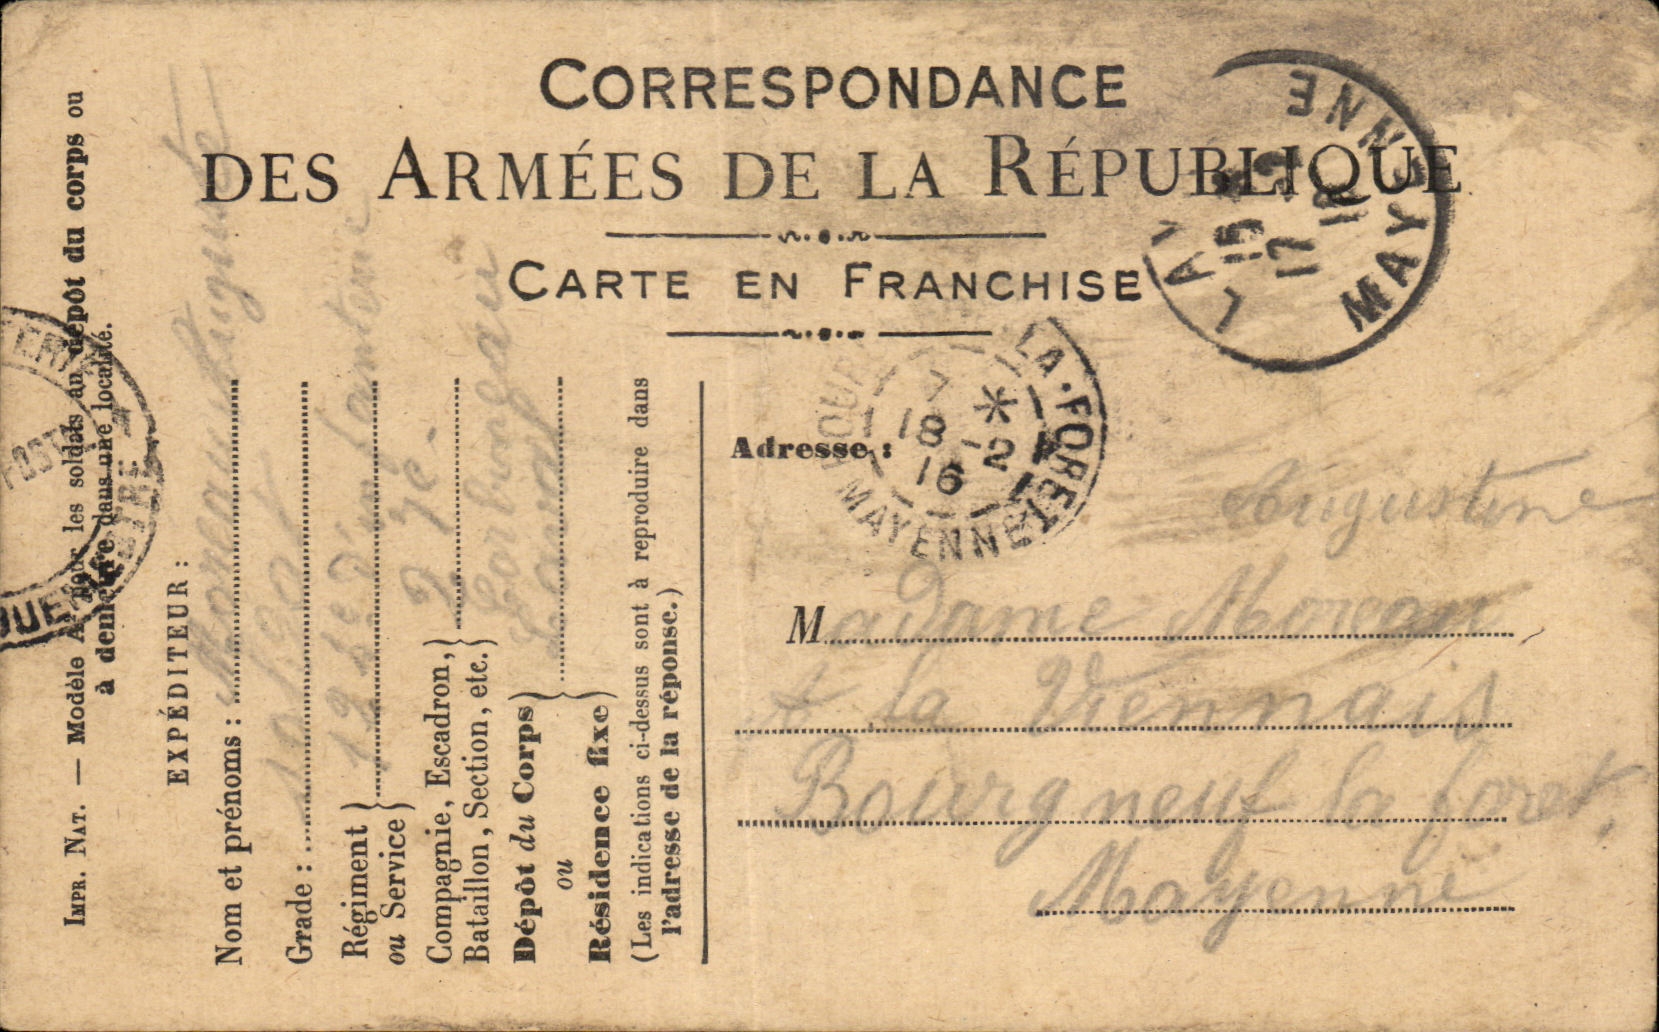 CORRESPONDANCE
DES ARMÉES DE LA RÉPUBLIQUE
CARTE EN FRANCHISE
IMPR. NAT. — Modèle A pour les soldats au dépôt du corps ou
à demeure dans une localité.
EXPÉDITEUR :
Nom et prénoms : Moreau Auguste
Grade :
Régiment
ou Service
d'infanterie
Compagnie, Escadron,
Bataillon, Section, etc.
Dépôt du Corps
ou
Résidence fixe
(Les indications ci-dessus sont à reproduire dans
l'adresse de la réponse.)
LAV
MAYENNE
15
17 2
16
LA FORET
MAYENNE
7 *
18 -2
16
POSTE
Adresse :
Augustine
Madame Moreau
A la Viennais
Bourgneuf la foret.
Mayenne